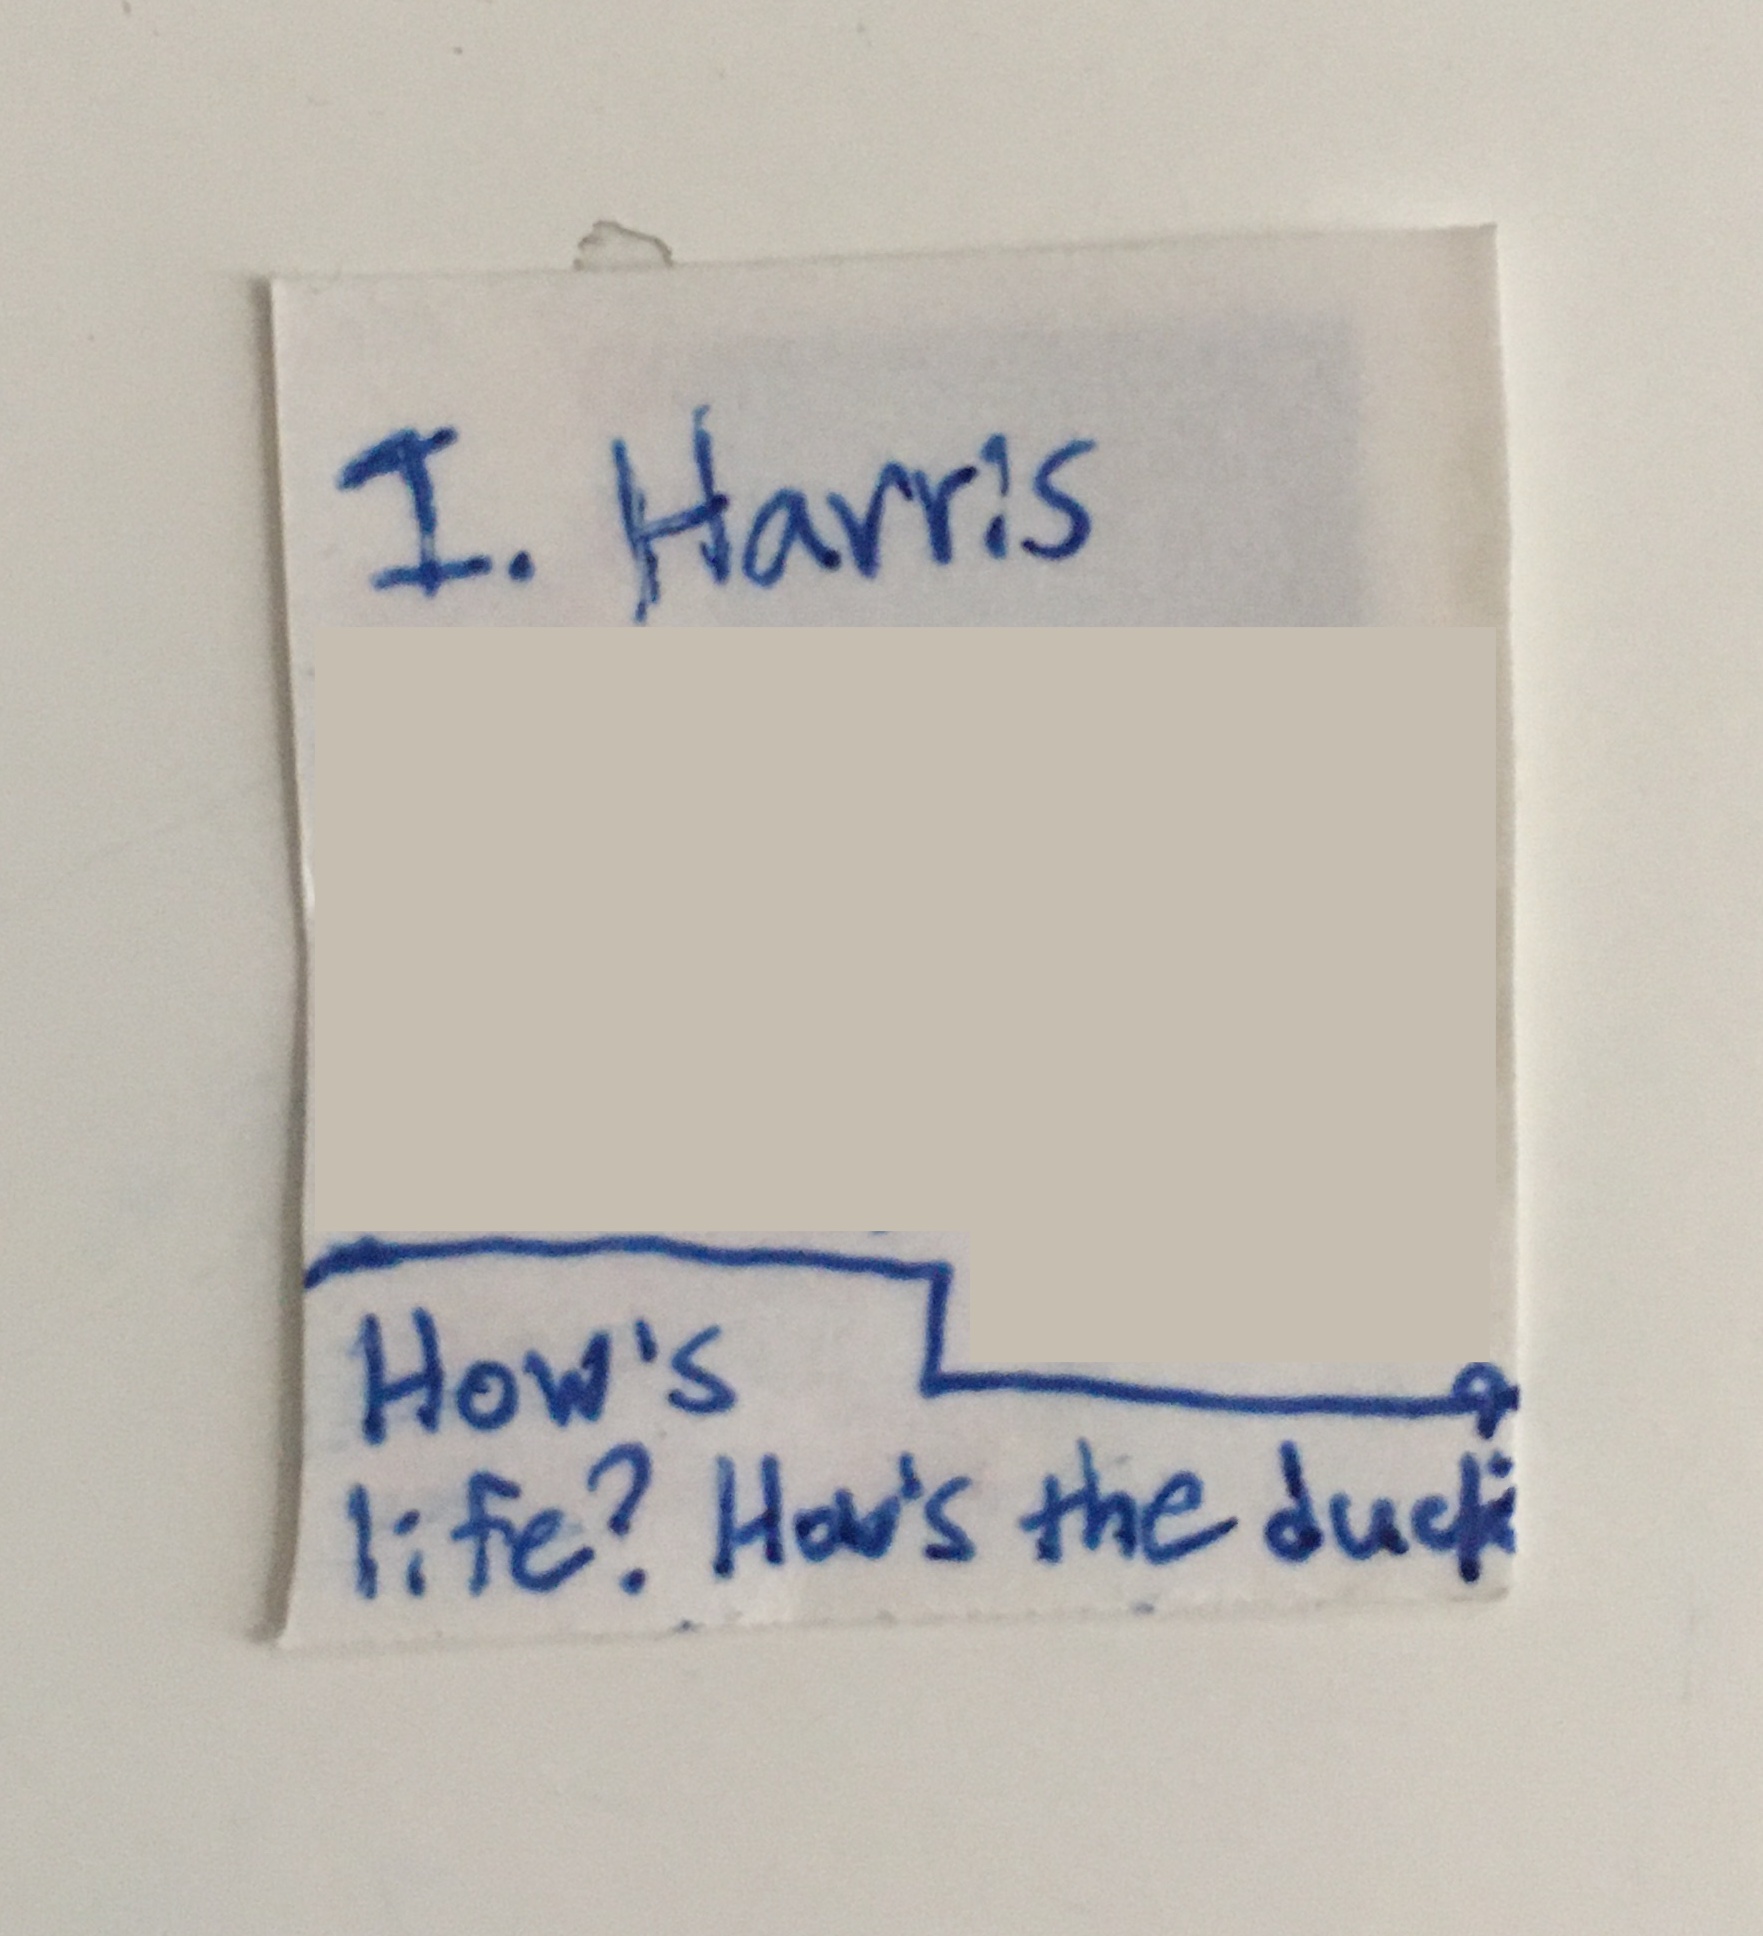 I. Harris
How's
life? How's the duck